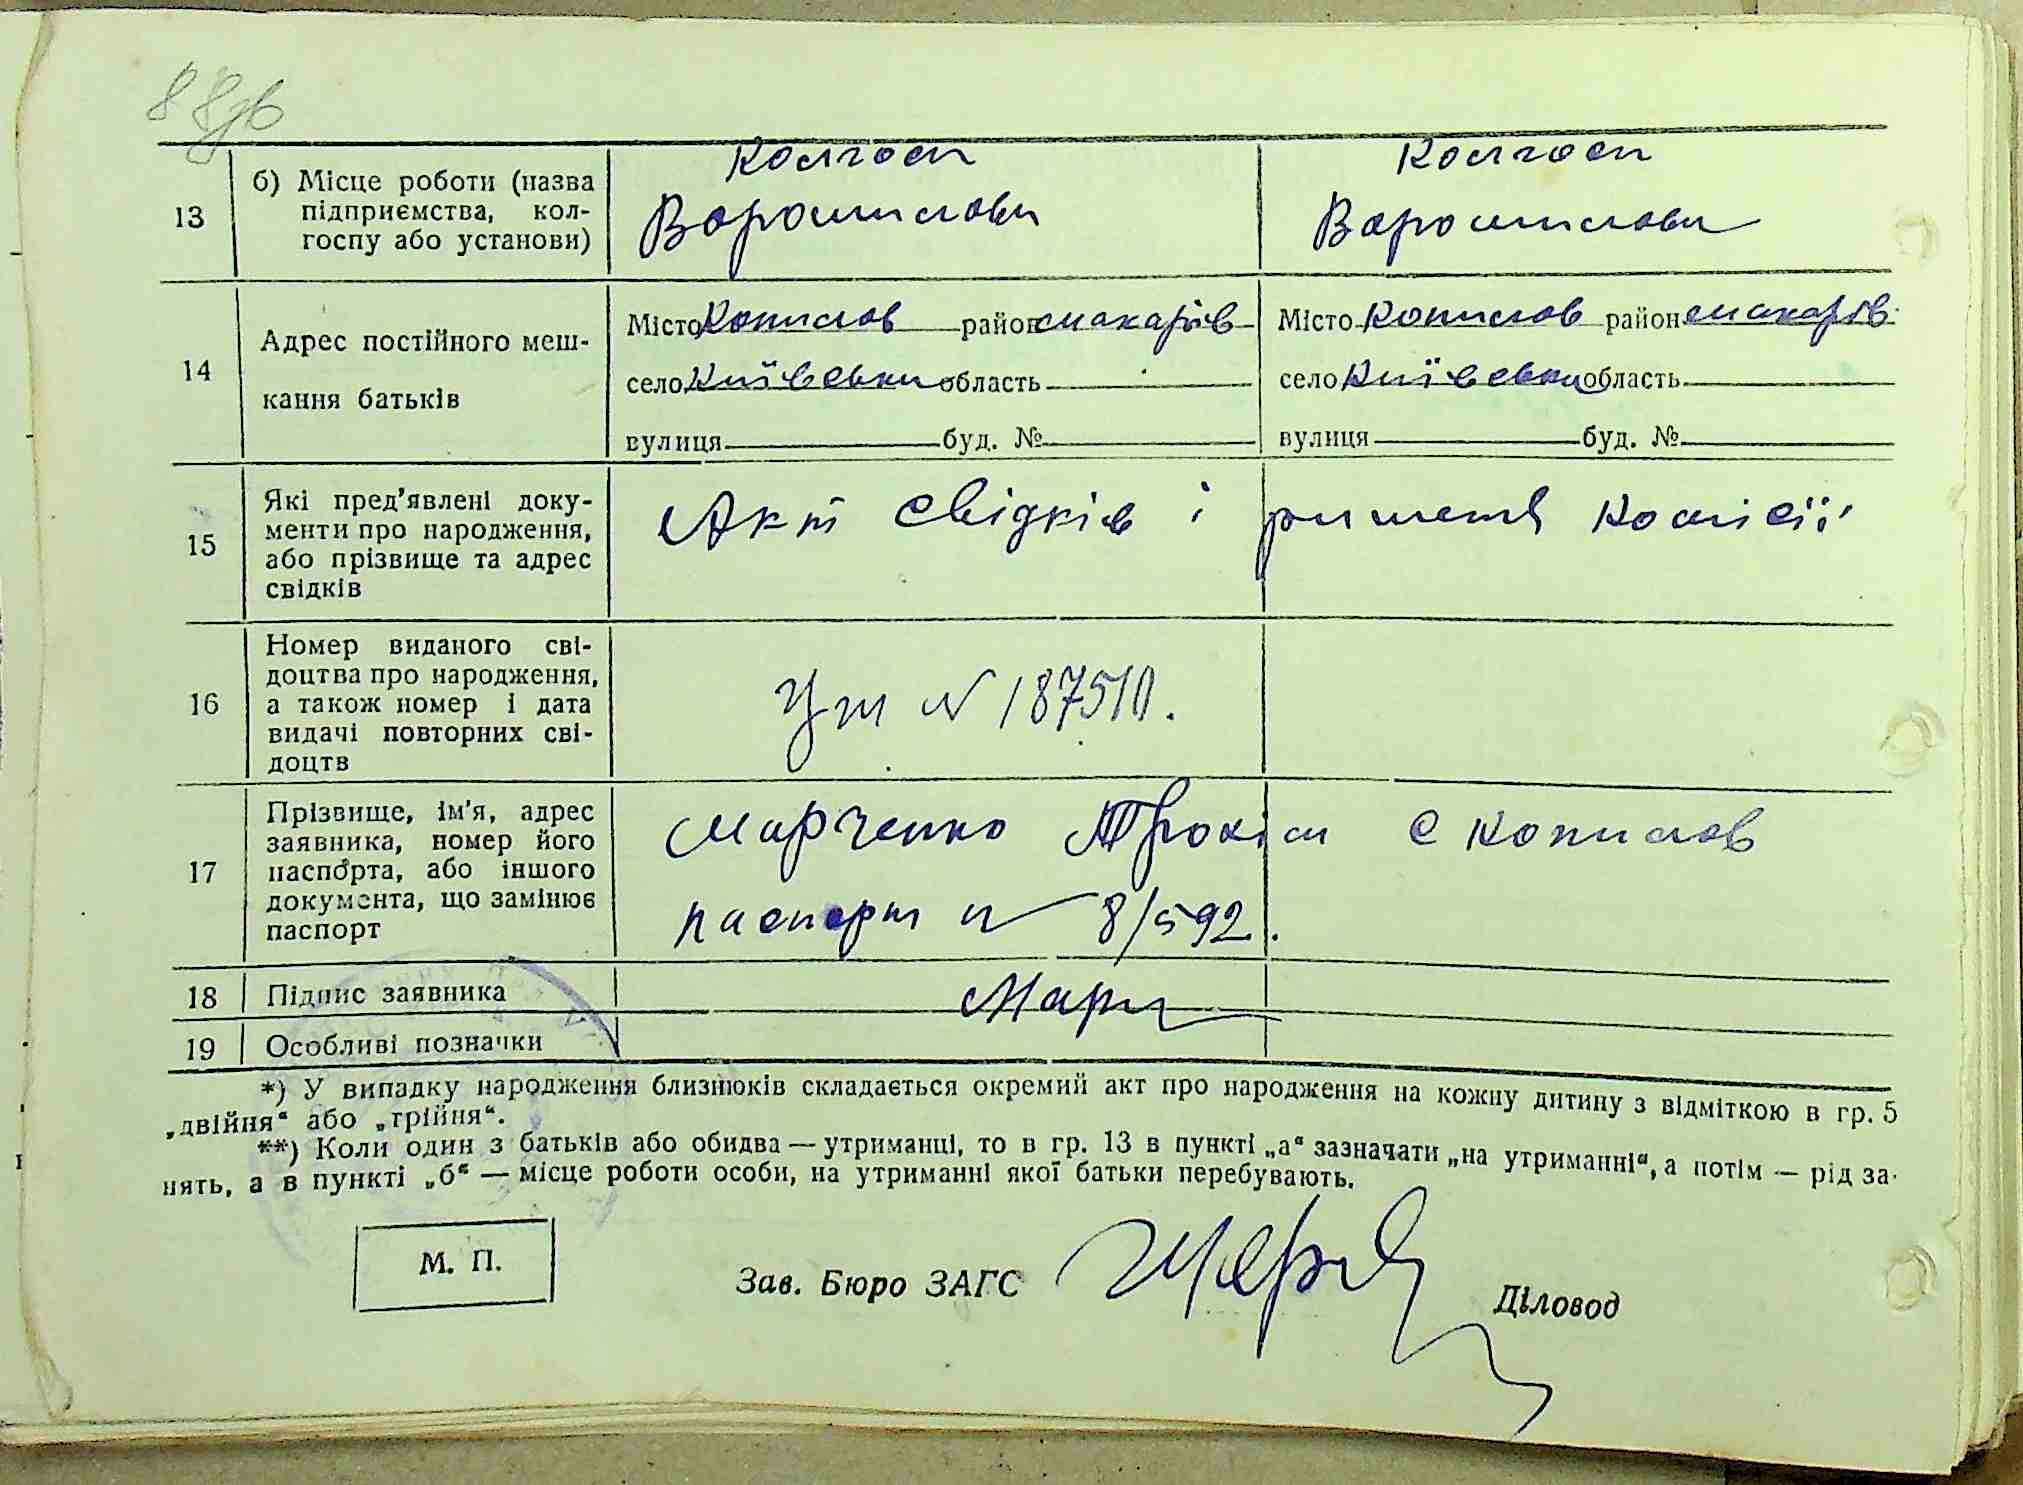 88зв
13
б) Місце роботи (назва
підприємства, кол-
госпу або установи)
Колгосп
Ворошилови
Колгосп
Ворошилови
14
Адрес постійного меш-
кання батьків
Місто Копилов район Макарів
село Київськи область
вулиця буд. №
Місто Копилов район Макарів
село Київськи область
вулиця буд. №
15
Які пред'явлені доку-
менти про народження,
або прізвище та адрес
свідків
Акт свідків і рішення комісії
16
Номер виданого сві-
доцтва про народження,
а також номер і дата
видачі повторних сві-
доцтв
N 187510.
17
Прізвище, ім'я, адрес
заявника, номер його
паспорта, або іншого
документа, що замінює
паспорт
Марченко Трохим с Копилов
паспорт N 8/592.
18
Підпис заявника
Марч
19
Особливі позначки
*) У випадку народження близнюків складається окремий акт про народження на кожну дитину з відміткою в гр. 5
„двійня“ або „трійня“.
**) Коли один з батьків або обидва — утриманці, то в гр. 13 в пункті „а“ зазначати „на утриманні“, а потім — рід за-
нять, а в пункті „б“ — місце роботи особи, на утриманні якої батьки перебувають.
М. П.
Зав. Бюро ЗАГС
Діловод